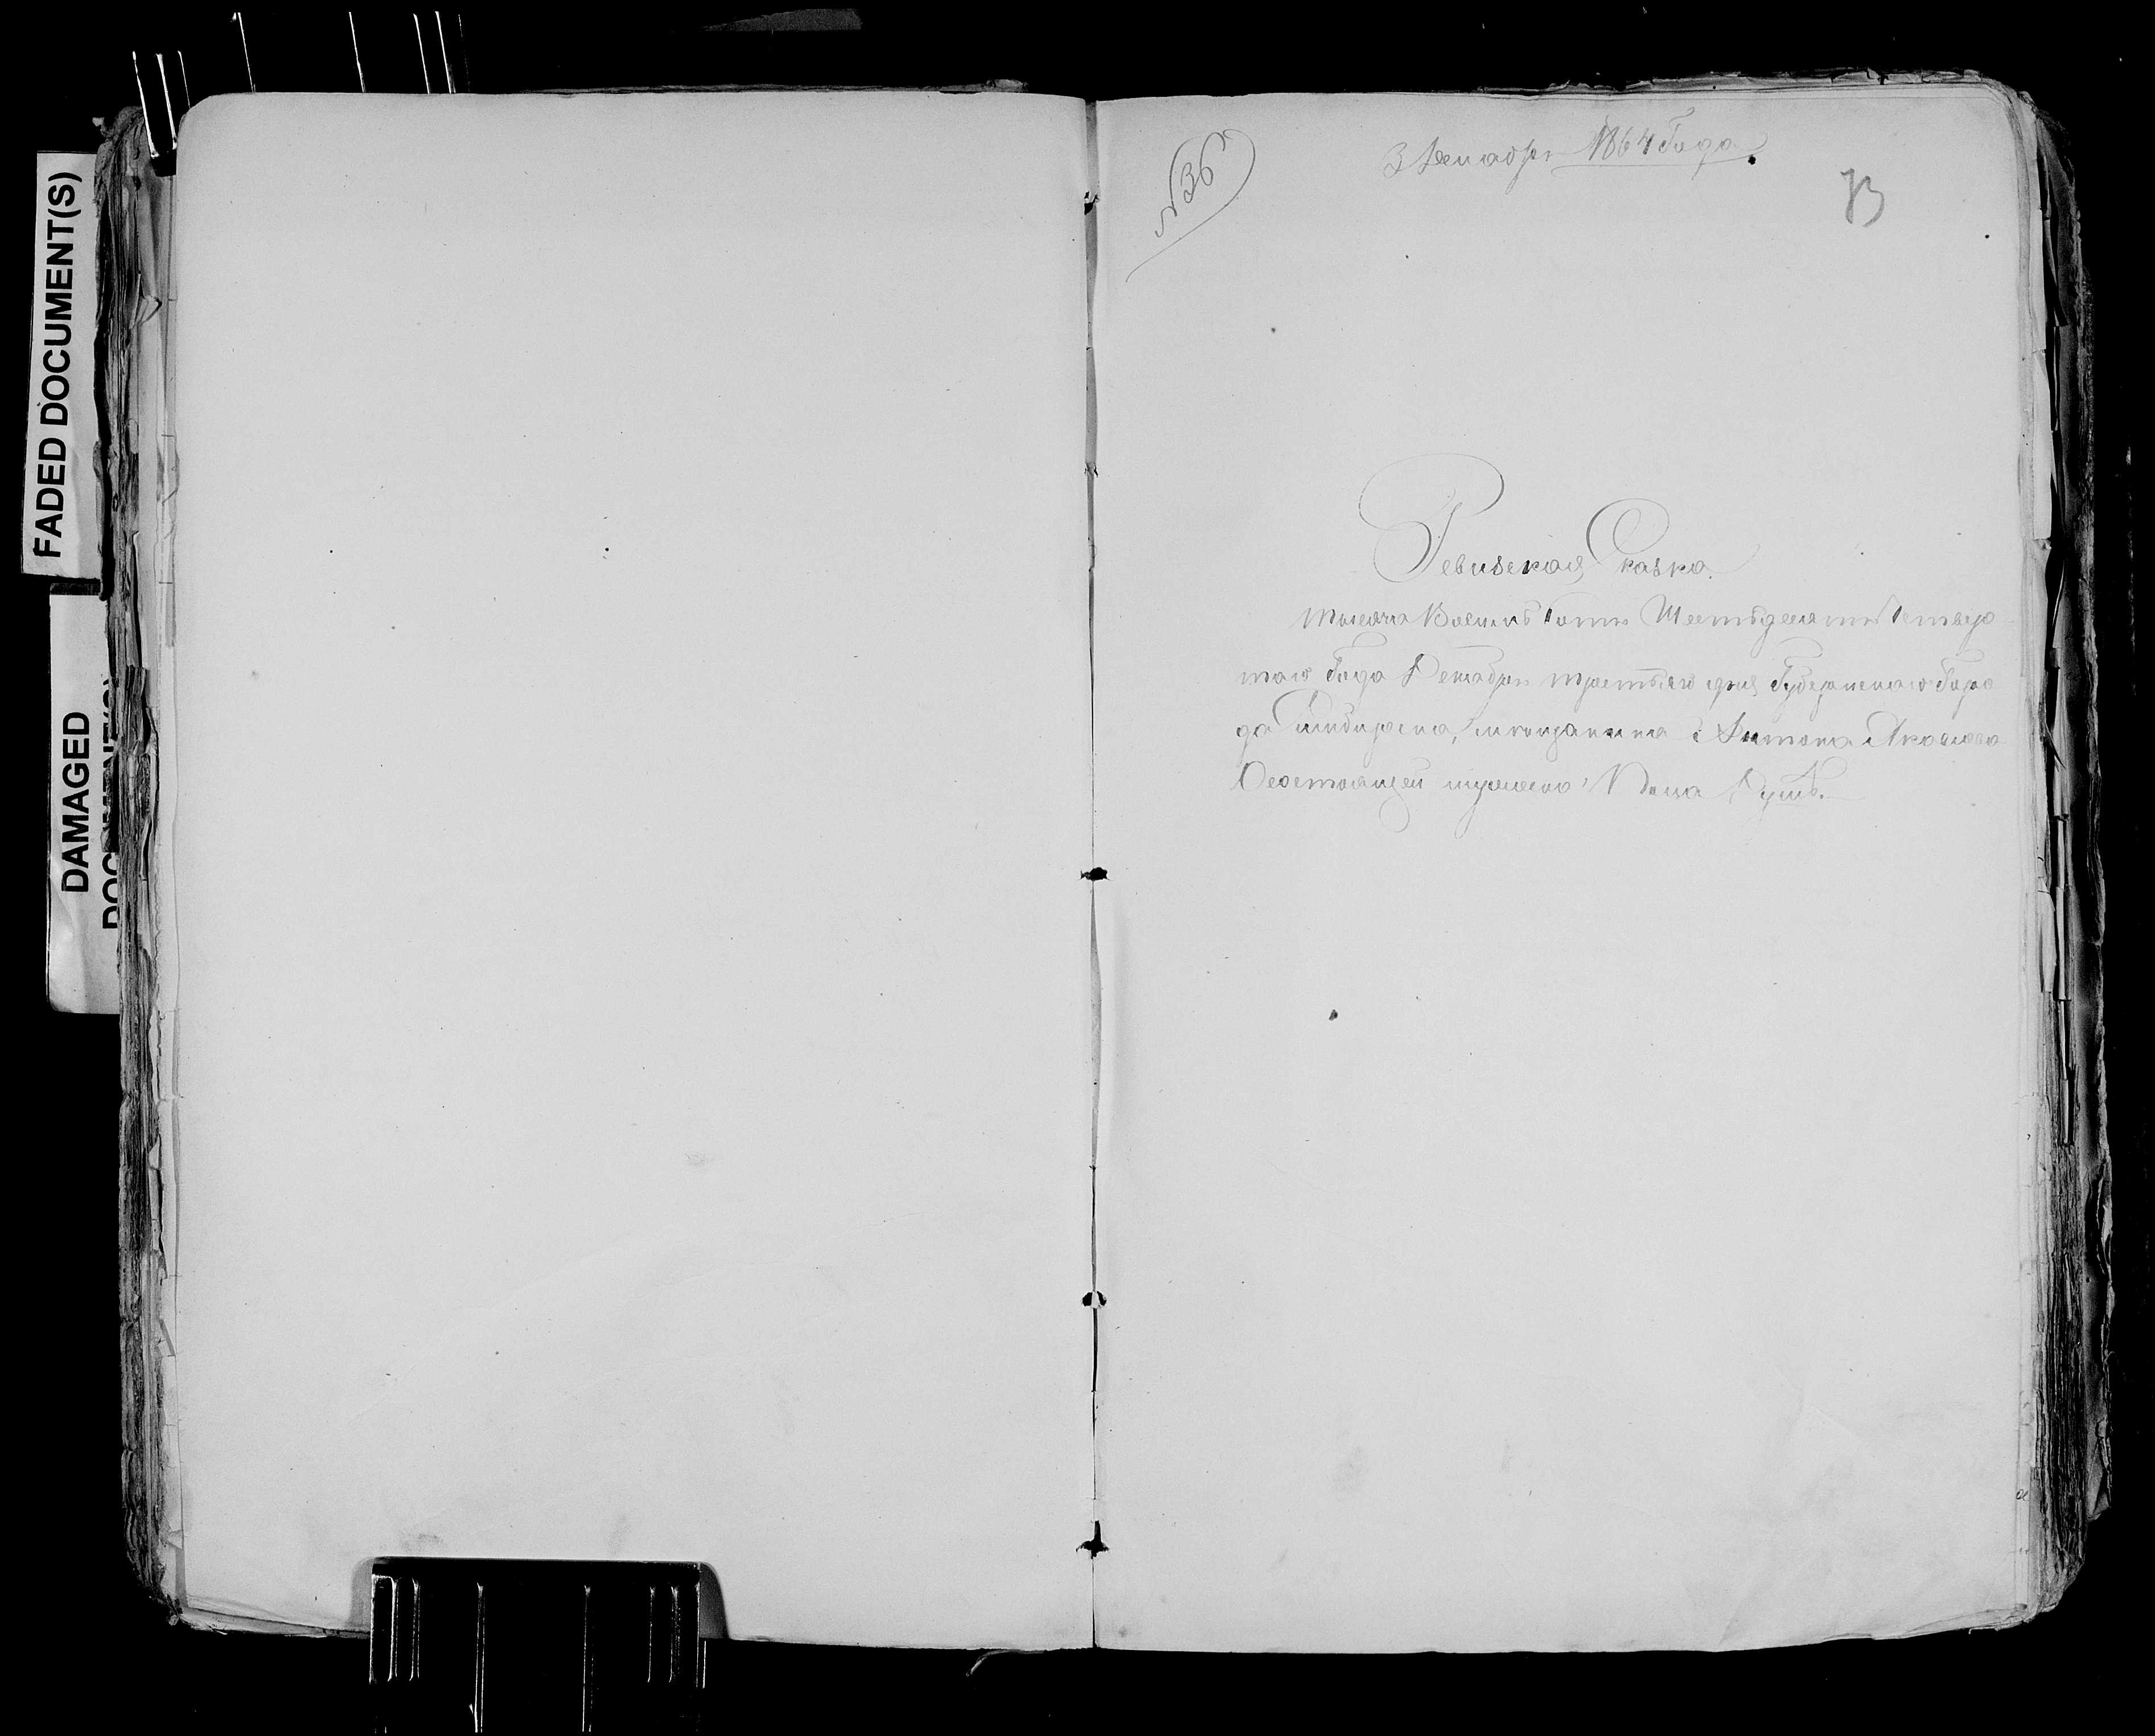 FADED DOCUMENT(S)
DAMAGED
№36
3 декабря 1864 Года.
73
Ревизская Сказка.
тысяча Восемь Сотъ Шестьдесятъ Четвер
таго Года Декабря третьяго дня Губернскаго Горо
да Симбирска, мещанина Антона Яковлева
Состоящей мужеска Пола Душъ.